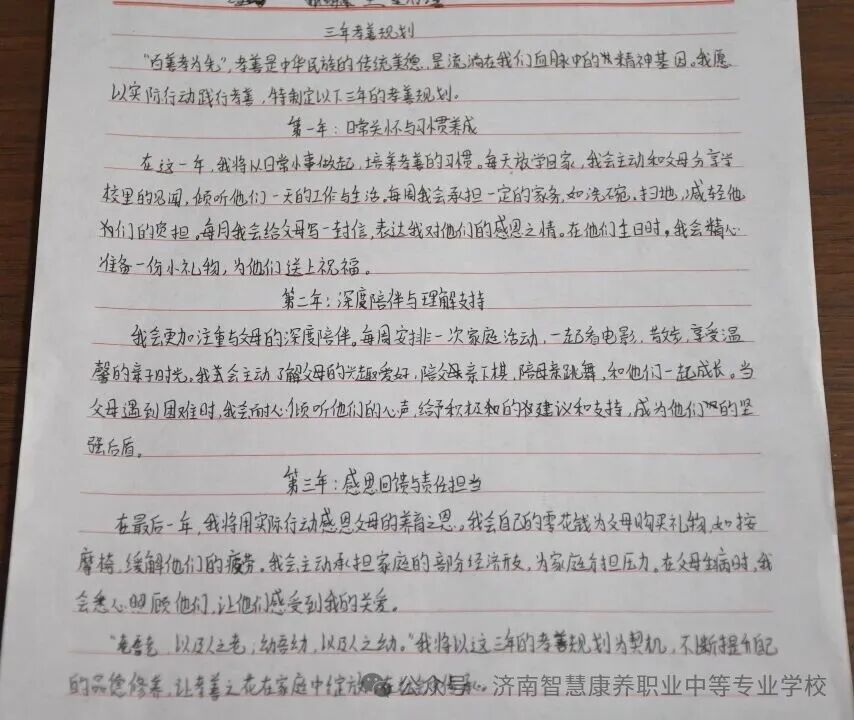 三年孝善规划
“百善孝为先”，孝善是中华民族的传统美德，是流淌在我们血脉中的精神基因。我愿
以实际行动践行孝善，特制定以下三年的孝善规划。
第一年：日常关怀与习惯养成
在这一年，我将以日常小事做起，培养孝善的习惯。每天放学回家，我会主动和父母分享学
校里的见闻，倾听他们一天的工作与生活。每周我会承担一定的家务，如洗碗，扫地，减轻他
们的负担。每月我会给父母写一封信，表达我对他们的感恩之情。在他们生日时，我会精心
准备一份小礼物，为他们送上祝福。
第二年：深度陪伴与理解支持
我会更加注重与父母的深度陪伴。每周安排一次家庭活动，一起看电影，散步，享受温
馨的亲子时光。我会主动了解父母的兴趣爱好，陪父亲下棋，陪母亲跳舞，和他们一起成长。当
父母遇到困难时，我会耐心倾听他们的心声，给予积极的建议和支持，成为他们的坚
强后盾。
第三年：感恩回馈与责任担当
在最后一年，我将用实际行动感恩父母的养育之恩。我会自己的零花钱为父母购买礼物，如按
摩椅，缓解他们的疲劳。我会主动承担家庭的部分经济开支，为家庭分担压力。在父母生病时，我
会悉心照顾他们，让他们感受到我的关爱。
“老吾老，以及人之老；幼吾幼，以及人之幼。”我将以这三年的孝善规划为契机，不断提升自己
的品德修养，让孝善之花在家庭中绽放
公众号 济南智慧康养职业中等专业学校